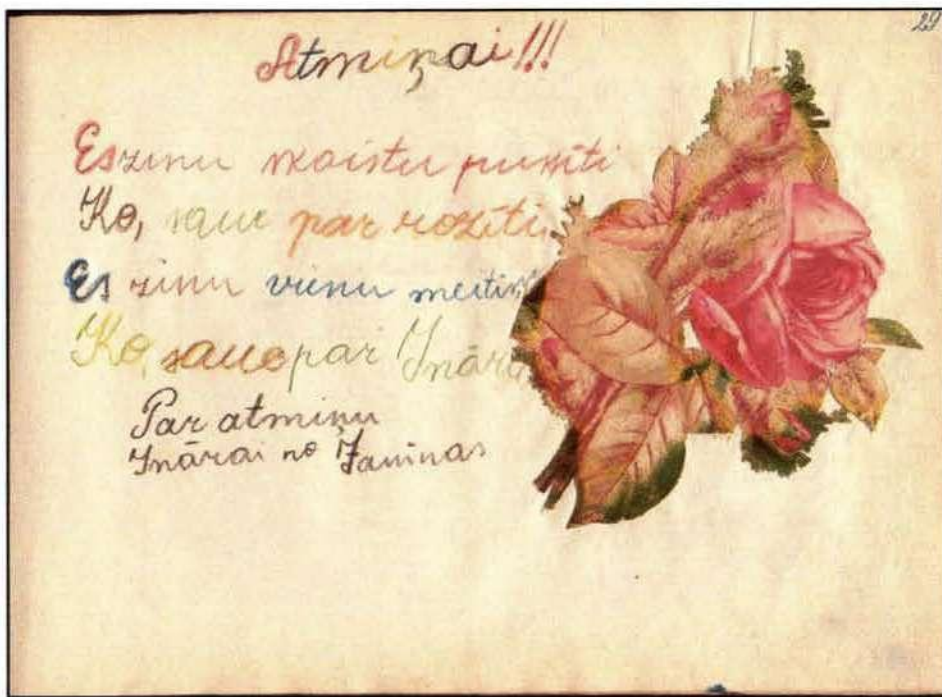 29
Atmiņai!!!
Es zinu skaistu puķīti
Ko, sauc par rozīti,
Es zinu vienu meitiņ
Ko, sauc par Ināri
Par atmiņu
Inārai no Janīnas